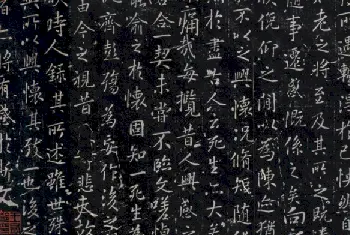 遇暫得於己快然自
老之將至及其所之既
隨事遷感慨係之矣向
俛仰之閒以為陳迹猶
不以之興懷況脩短隨
於盡古人云死生亦大
痛哉每攬昔人興感之
合一契未嘗不臨文嗟
喻之於懷固知一死生為
齊彭殤為妄作後之
由今之視昔悲夫故
時人錄其所述雖世殊
所以興懷其致一也後
之將有感於斯文